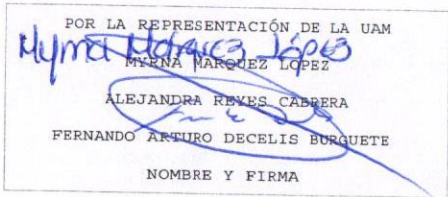 POR LA REPRESENTACIÓN DE LA UAM
Myrna Marquez López
MYRNA MARQUEZ LOPEZ
ALEJANDRA REYES CABRERA
FERNANDO ARTURO DECELIS BURGUETE
NOMBRE Y FIRMA